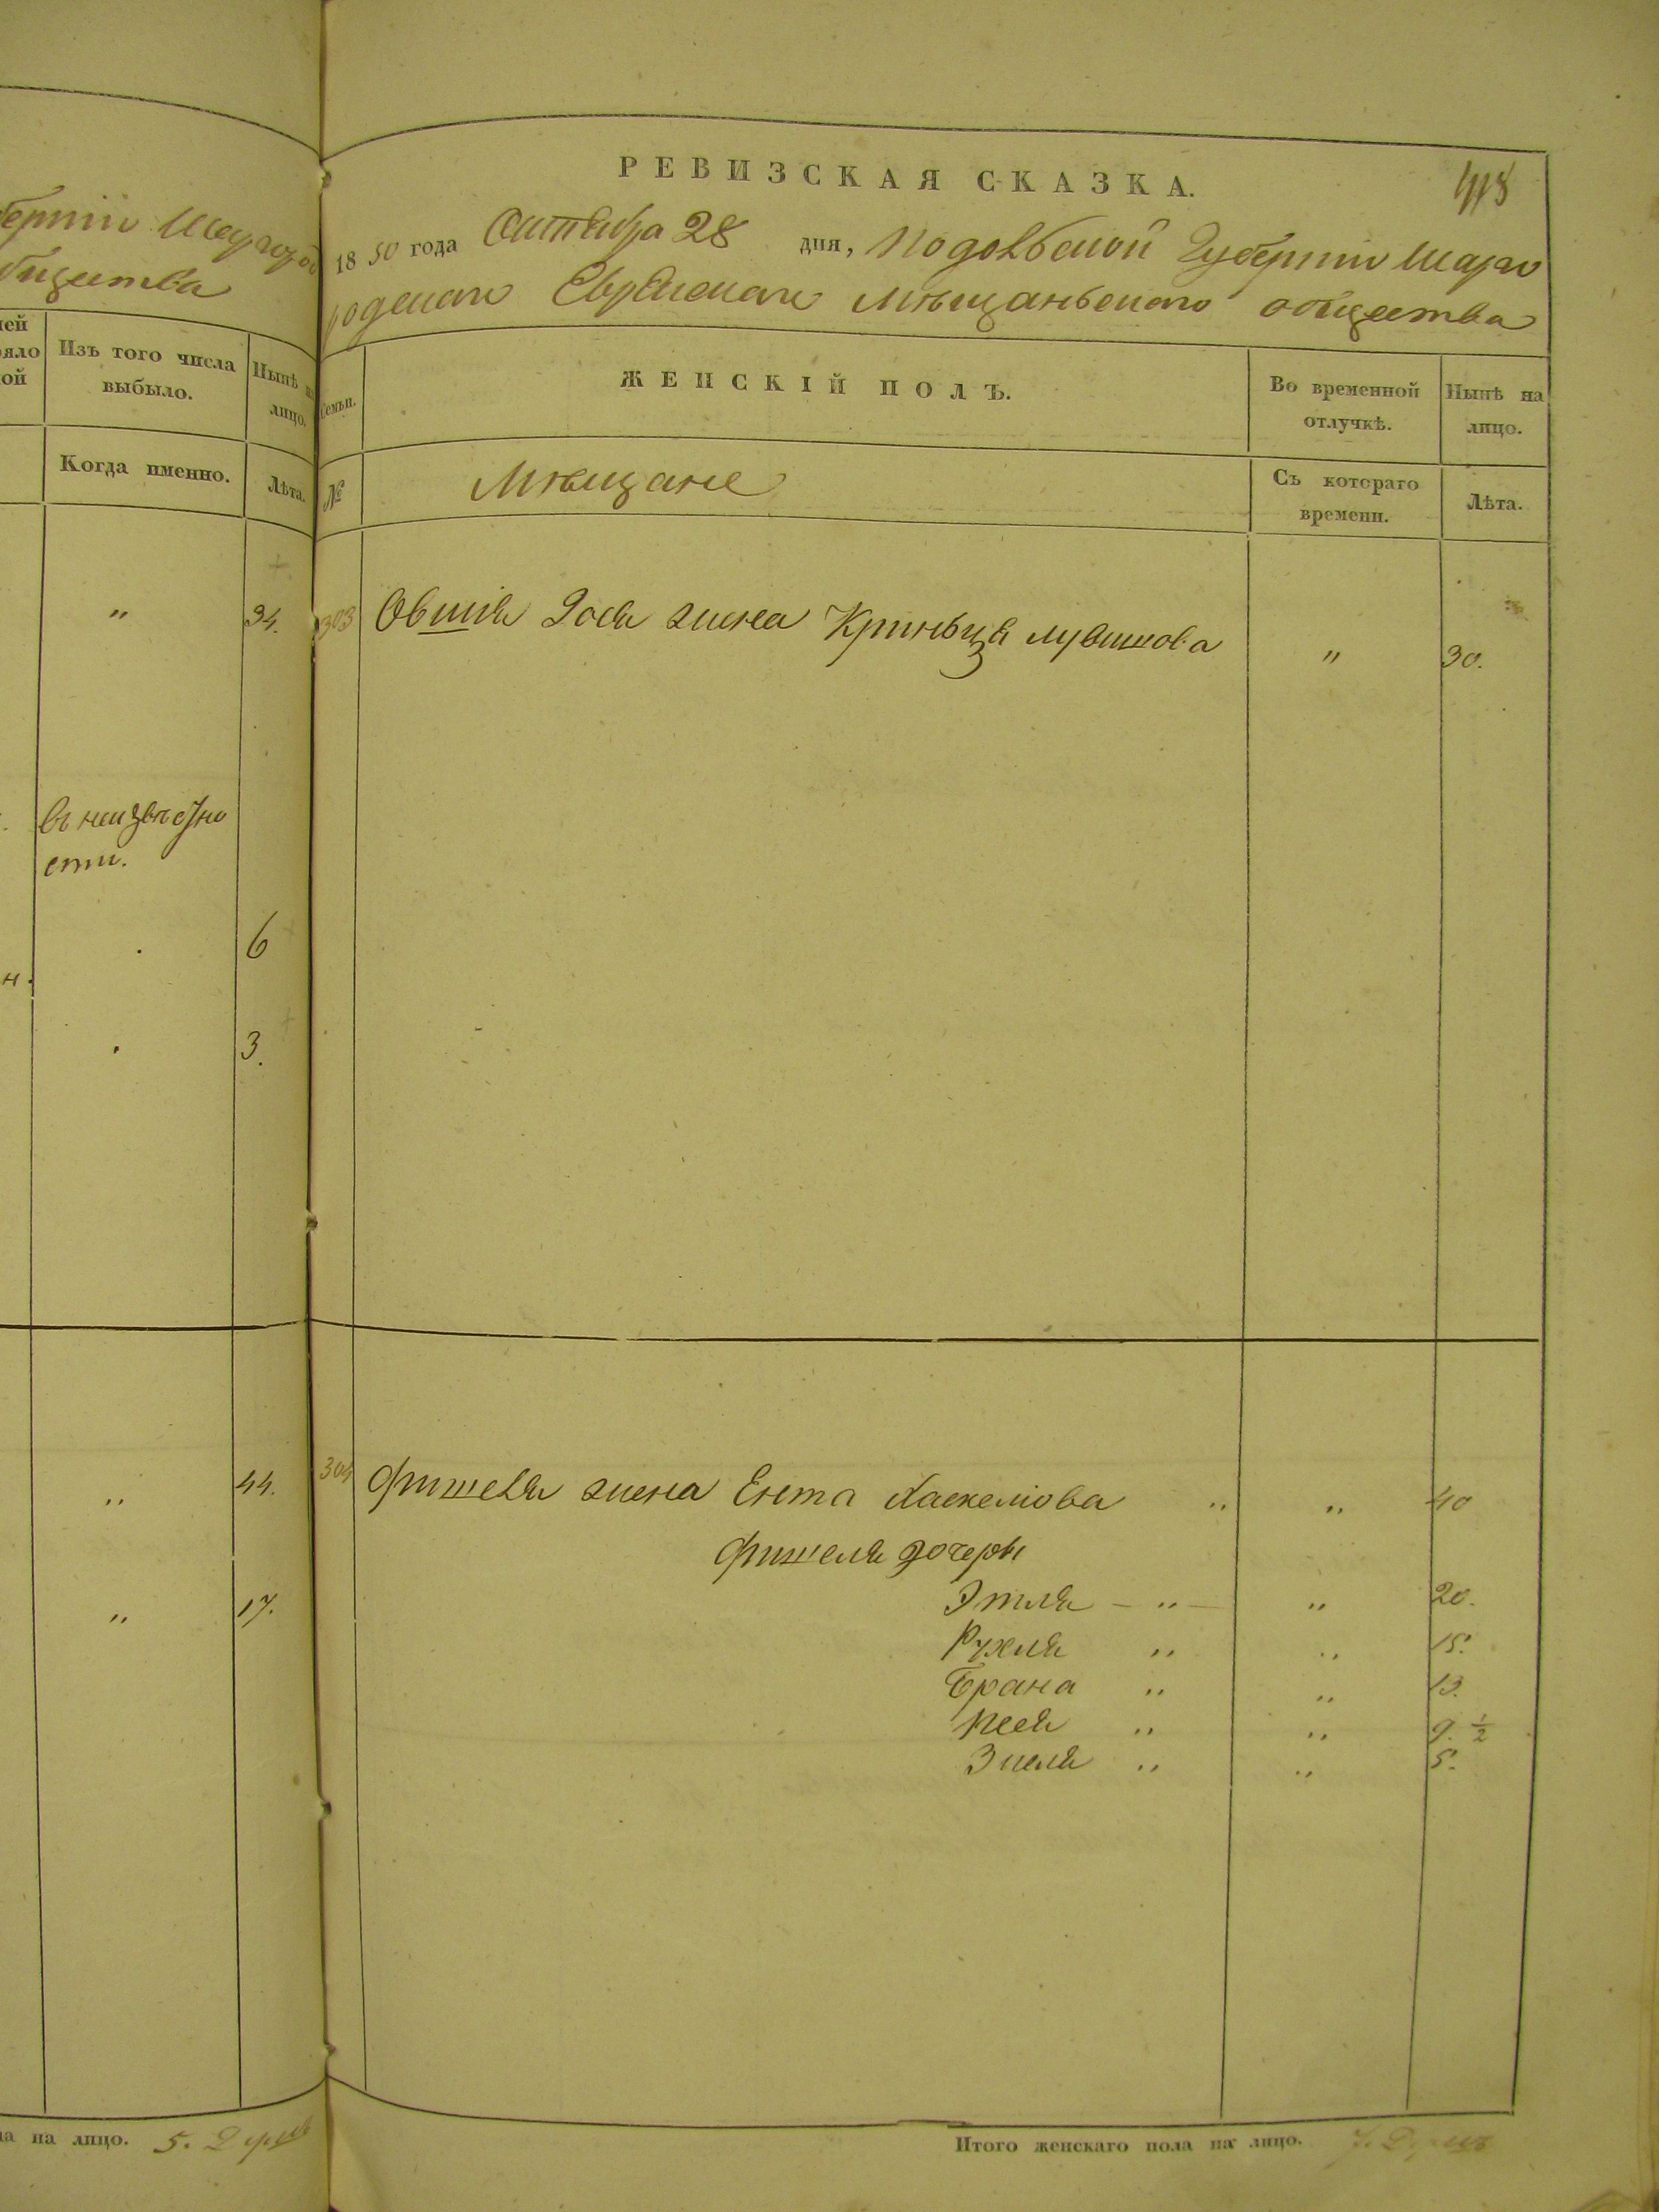 берніи Шаргород
бщества
ней
ояло
ной
Изъ того числа
выбыло.
Нынѣ на
лицо.
Когда именно.
Лѣта.
"
34.
въ неизвѣстно
сти.
6
н.
3.
"
44.
"
17.
на на лицо. 5. Душъ
РЕВИЗСКАЯ СКАЗКА.
418
1850 года Сентября 28 дня, Подольской Губерніи Шарго
родскаго Еврейскаго Мѣщанского общества
Семьи.
ЖЕНСКІЙ ПОЛЪ.
Во временной
отлучкѣ.
Нынѣ на
лицо.
№
Мѣщане
Съ котораго
времени.
Лѣта.
303 Овшія жена " 30.
304 Фишеля жена Ента Хаскеліова " " 40
Фишеля дочери
Этля – " – " 20.
Рухля " " 15.
Брана " " 13.
Песя " " 9. ½
Зиселя " " 5.
Итого женскаго пола на лицо. 7. Душъ